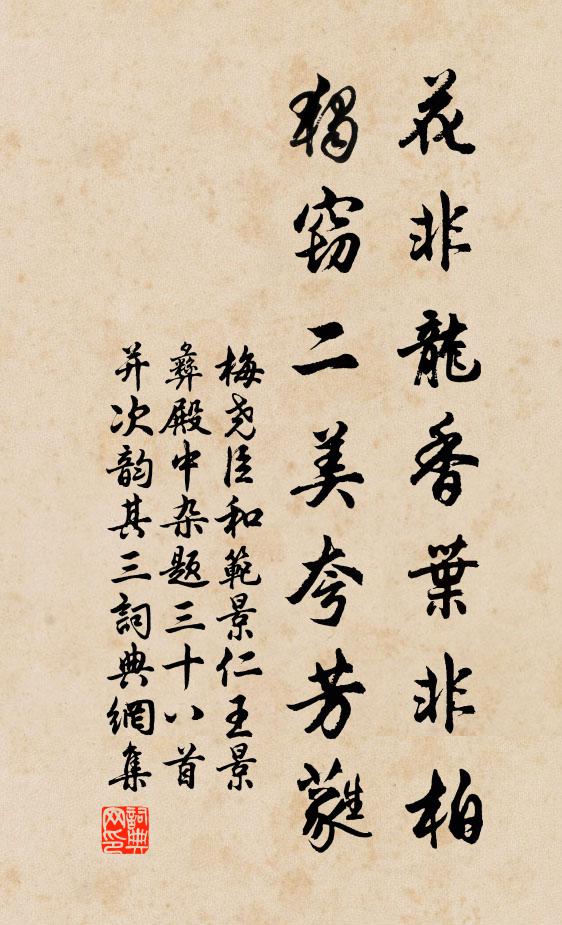 花非龍香葉非柏
獨窃二美夸芳蕤
梅尧臣和範景仁王景
彝殿中杂题三十八首
并次韵其三詞典網集
詞典
网印